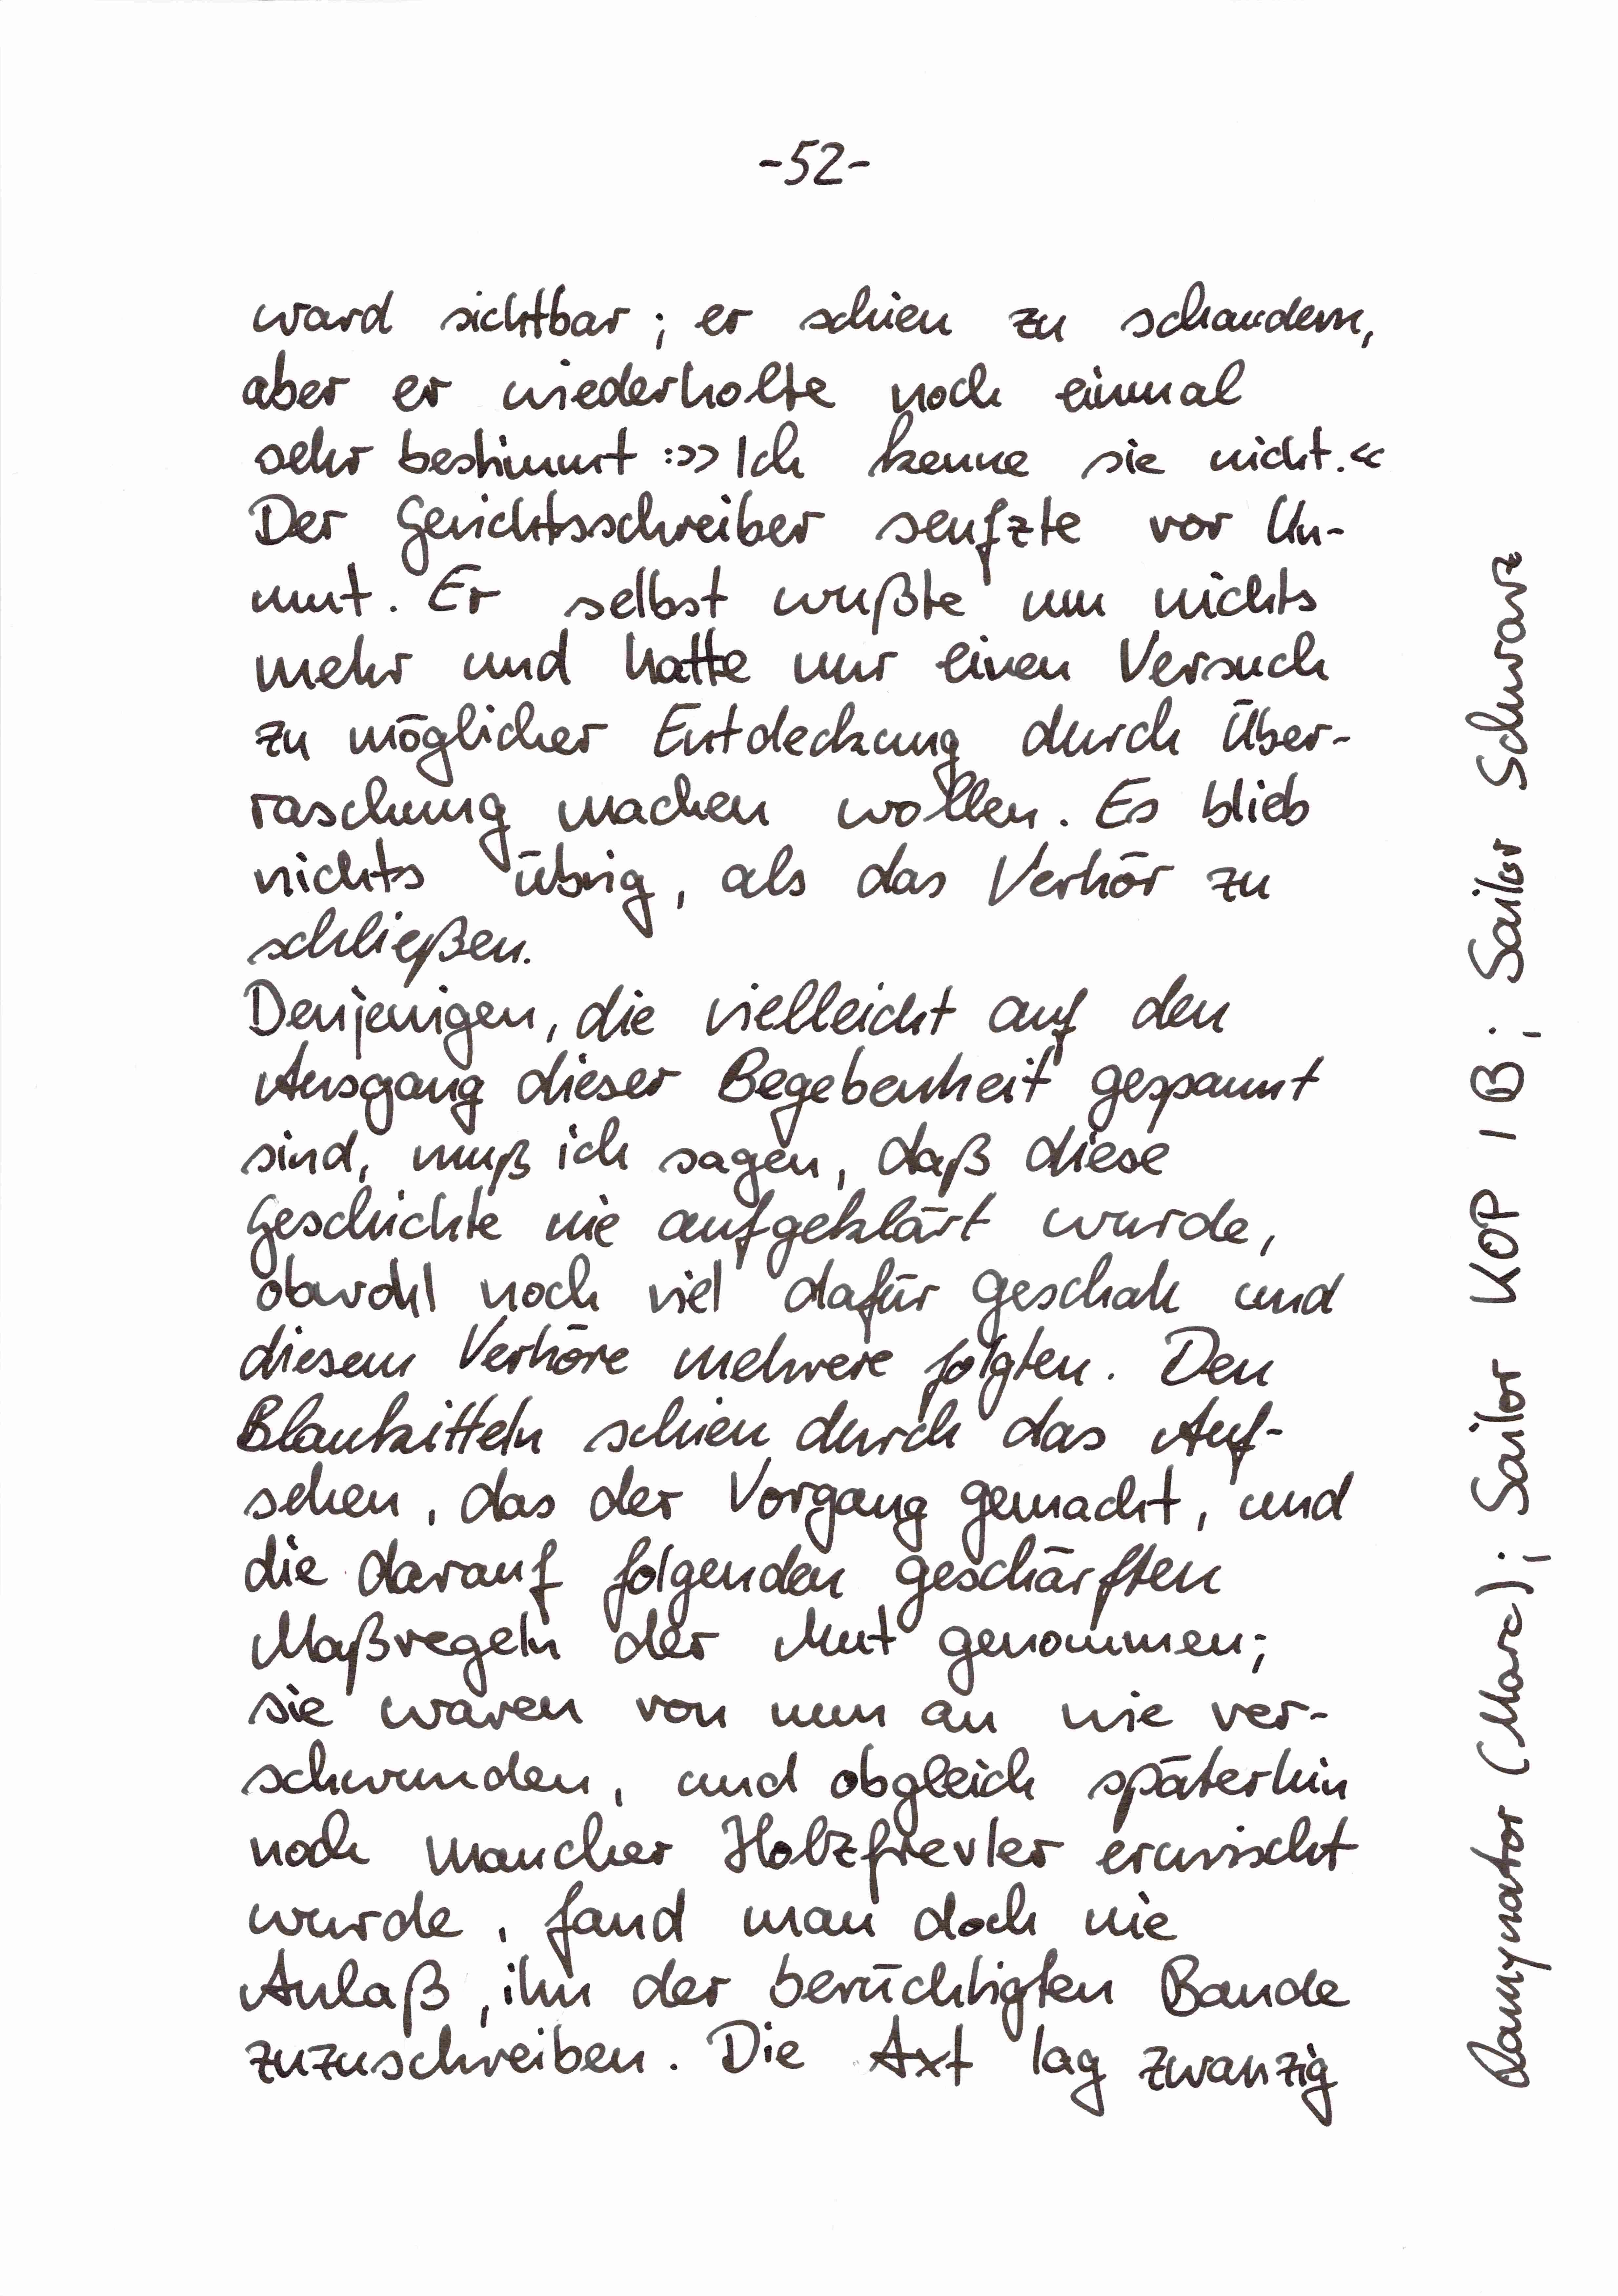 -52-
ward sichtbar; er schien zu schaudern,
aber er wiederholte noch einmal
sehr bestimmt: »Ich kenne sie nicht.«
Der Gerichtsschreiber seufzte vor Un-
mut. Er selbst wußte um nichts
mehr und hatte nur einen Versuch
zu möglicher Entdeckung durch Über-
raschung machen wollen. Es blieb
nichts übrig, als das Verhör zu
schließen.
Denjenigen, die vielleicht auf den
Ausgang dieser Begebenheit gespannt
sind, muß ich sagen, daß diese
Geschichte nie aufgeklärt wurde,
obwohl noch viel dafür geschah und
diesem Verhöre mehrere folgten. Den
Blaukitteln schien durch das Auf-
sehen, das der Vorgang gemacht, und
die darauf folgenden geschärften
Maßregeln der Mut genommen;
sie waren von nun an wie ver-
schwunden, und obgleich späterhin
noch mancher Holzfrevler erwischt
wurde, fand man doch nie
Anlaß, ihn der berüchtigten Bande
zuzuschreiben. Die Axt lag zwanzig
(Marc); Sailor KOP 1 B; Sailor Schwarz